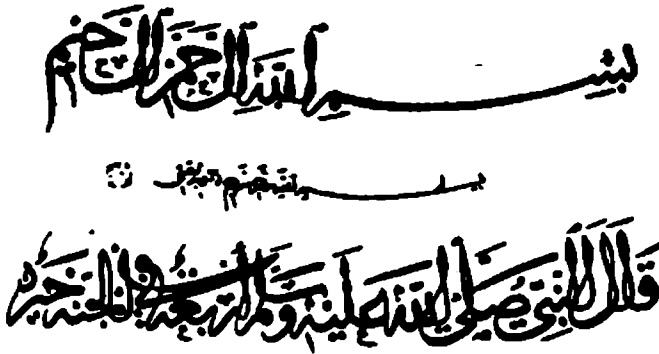 بسم الله الرحمن الرحيم
قال النبي صلى الله عليه وسلم اربعة في الجنة خير